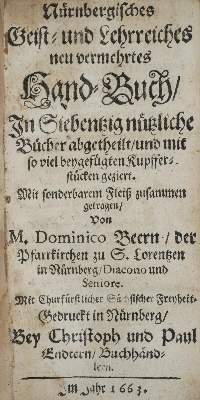 Nürnbergisches
Geist- und Lehrreiches
neu vermehrtes
Hand-Buch/
In Siebentzig nützliche
Bücher abgetheilt/ und mit
so viel beygefügten Kupffer-
stücken geziert.
Mit sonderbarem Fleiß zusammen
getragen/
Von
M. Dominico Beern/ der
Pfarrkirchen zu S. Lorentzen
in Nürnberg/ Diacono und
Seniore.
Mit Churfürstlicher Sächsischer Freyheit.
Gedruckt in Nürnberg/
Bey Christoph und Paul
Endtern/ Buchhänd-
lern.
Im Jahr 1663.